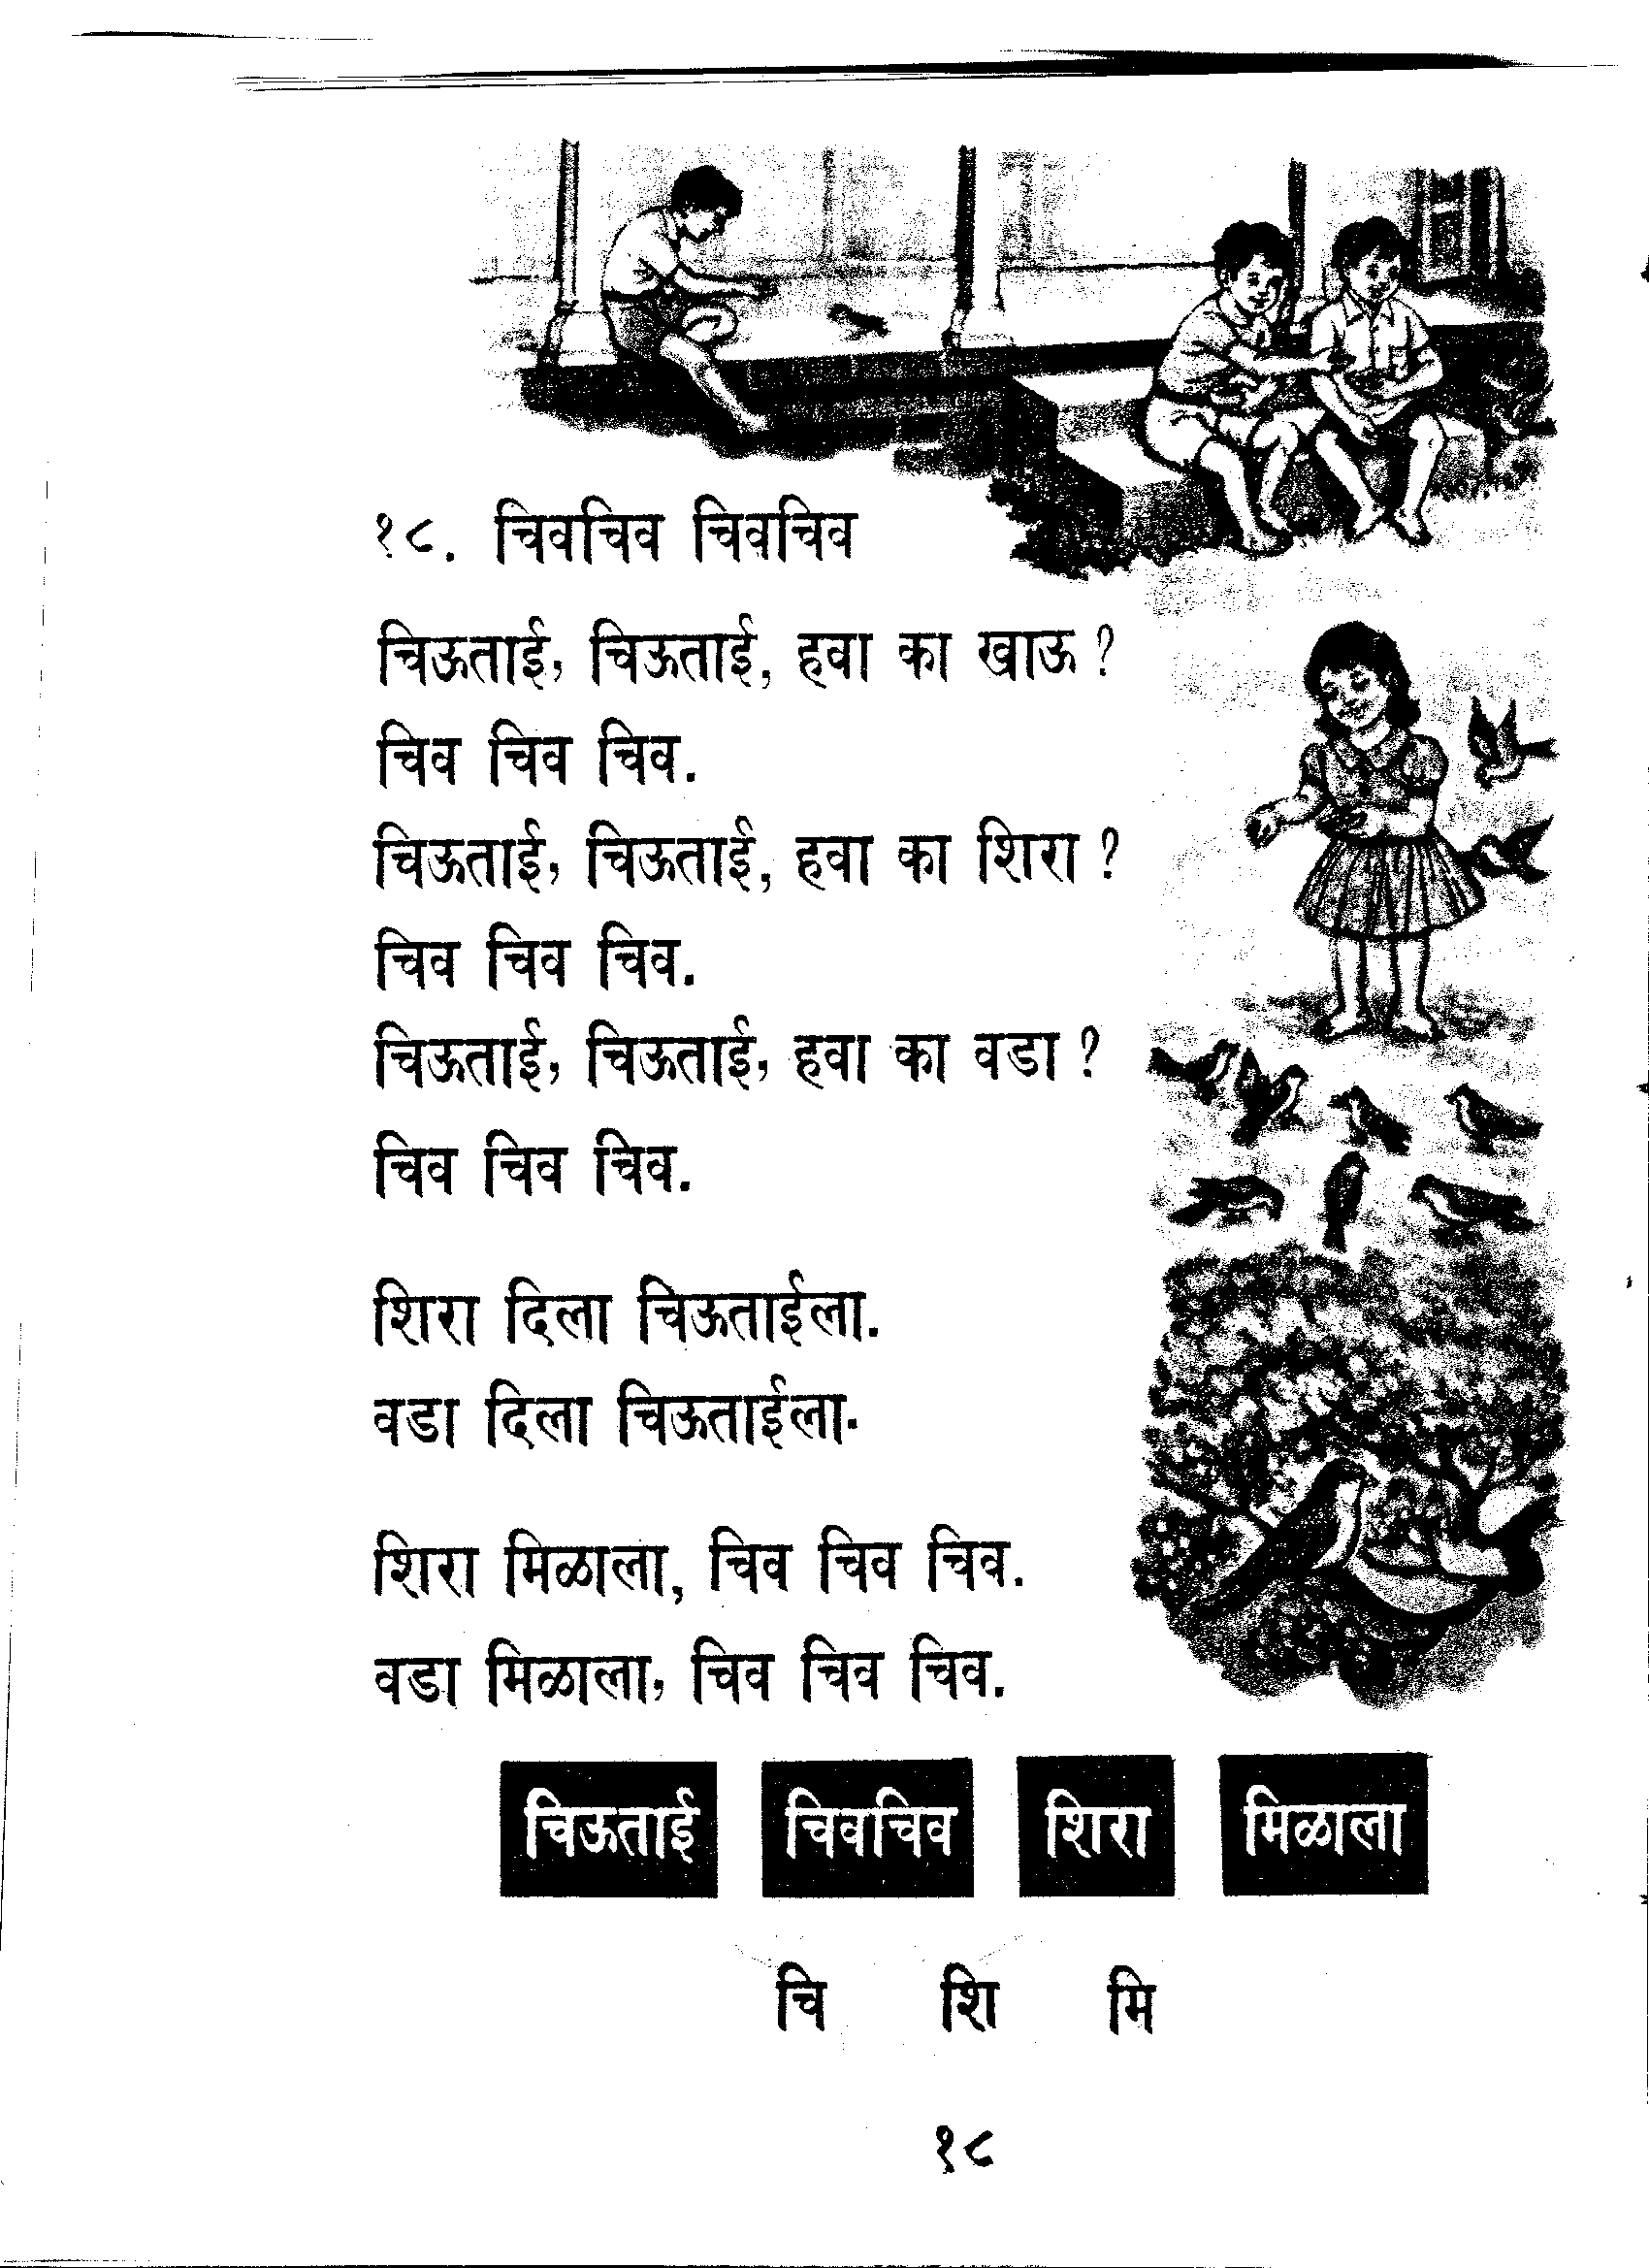 १८. चिवचिव चिवचिव
चिऊताई, चिऊताई, हवा का खाऊ ?
चिव चिव चिव.
चिऊताई, चिऊताई, हवा का शिरा ?
चिव चिव चिव.
चिऊताई, चिऊताई, हवा का वडा ?
चिव चिव चिव.
शिरा दिला चिऊताईला.
वडा दिला चिऊताईला.
शिरा मिळाला, चिव चिव चिव.
वडा मिळाला, चिव चिव चिव.
चिऊताई चिवचिव शिरा मिळाला
चि शि मि
१८